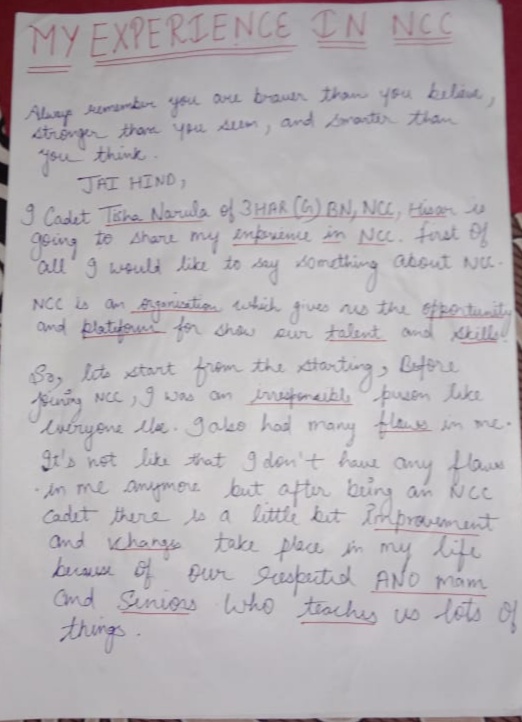 MY EXPERIENCE IN NCC
Always remember you are braver than you believe,
stronger than you seem, and smarter than
you think.
JAI HIND,
I Cadet Tisha Narula of 3HAR(G) BN, NCC, Hisar is
going to share my experience in NCC. First of
all I would like to say something about NCC.
NCC is an organisation which gives us the opportunity
and platform for show our talent and skills.
So, lets start from the starting, Before
joining NCC, I was an irresponsible person like
everyone else. I also had many flaws in me.
It's not like that I don't have any flaws
in me anymore but after being an NCC
Cadet there is a little bit improvement
and change take place in my life
because of our respected ANO mam
and Seniors who teaches us lots of
things.